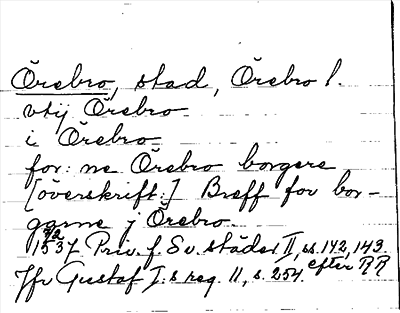 Örebro, stad, Örebro l.
vtij Örebro
i Örebro
for: ne Örebro borgere
[överskrift:] Breff for bor-
garne j Örebro.
9/2 1537 Priv. f. Sv. städer II, ss. 142, 143.
Jfr Gustaf I:s reg. 11, s. 254. efter RR